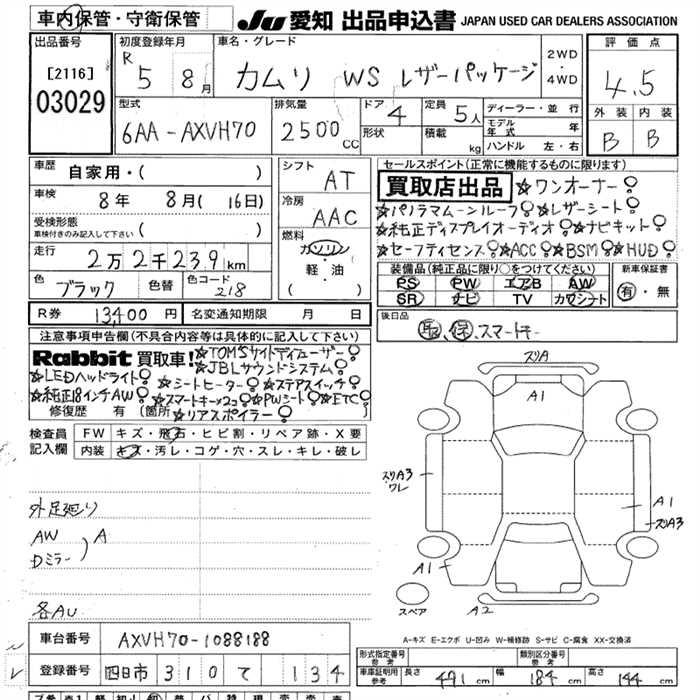 車内保管・守衛保管
JU 愛知 出品申込書 JAPAN USED CAR DEALERS ASSOCIATION
出品番号
[2116]
03029
初度登録年月
R 5 8月
車名・グレード
カムリ WS レザーパッケージ
2WD・4WD
評価点
4.5
外装 内装
B B
型式
6AA-AXVH70
排気量
2500CC
ドア 4
形状
定員 5人
積載 kg
ディーラー・並行
モデル年式 年
ハンドル 左・右
車歴 自家用・( )
車検 8年 8月(16日)
受検形態
車検付きのみ記入して下さい ( )
走行 2万2千239km
色 ブラック 色替 色コード 218
シフト AT
冷房 AAC
燃料
ガソリン
軽・油
( )
R券 13,400円 名変通知期限 月 日
セールスポイント(正常に機能するものに限ります)
買取店出品 ☆ワンオーナー
☆パノラマムーンルーフ ☆レザーシート
☆純正ディスプレイオーディオ ☆ナビキット
☆セーフティセンス ☆ACC ☆BSM ☆HUD
装備品(純正品に限り○をつけてください)
PS PW エアB AW
SR ナビ TV カワシート
新車保証書
有・無
後日品
取、保、スマートキー
注意事項申告欄(不具合内容等は具体的に記入して下さい)
Rabbit 買取車! ☆TOM'Sサイドディフューザー
☆JBLサウンドシステム
☆LEDヘッドライト ☆シートヒーター ☆ステアスイッチ
☆純正18インチAW ☆スマートキー×2コ ☆PWシート ☆ETC
修復歴 有 (箇所 ☆リアスポイラー
検査員記入欄
FW キズ・飛石・ヒビ割・リペア跡・X要
内装 キズ・汚レ・コゲ・穴・スレ・キレ・破レ
外足廻り
AW
Dミラー ) A
各AU
スリA
A1
スリA3
ワレ
A1
スリA3
A1
スペア
A2
A-キズ E-エクボ U-凹み W-補修跡 S-サビ C-腐食 XX-交換済
車台番号 AXVH70-1088188
登録番号 四日市 310 て 134
形式指定番号 参考
類別区分番号 参考
車庫証明用参考 長さ 491cm 幅 184cm 高さ 144cm